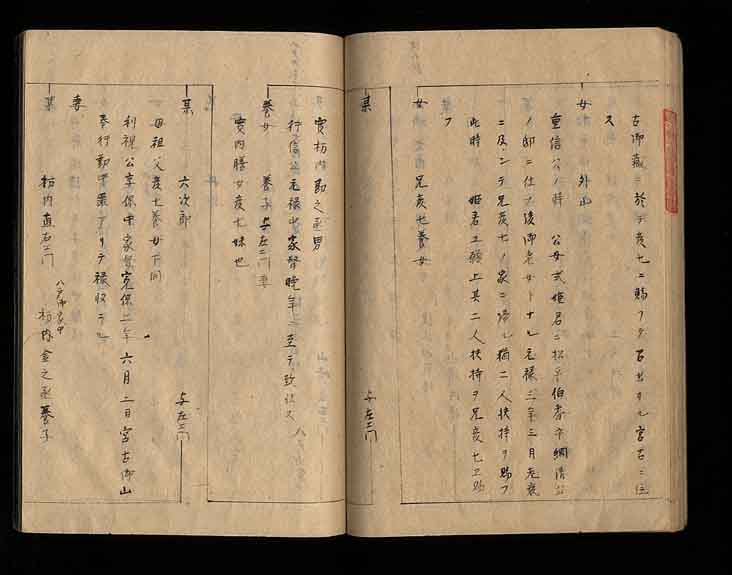 古御蔵ニ於テ亥七ニ賜フタ百出サル宮古ニ住
ス
女 外山
重信公ノ時 公女式姫君ニ松平伯耆守綱清公
ノ邸ニ仕フ後御老女トナル元禄三年三月老衰
ニ及ンテ兄亥七ノ家ニ帰ル猶二人扶持ヲ賜フ
此時 姫君ヨリ上其二人扶持ヲ兄亥七ニ賜
フ
女 兄亥七養女
某 与左エ門
実栃内勘之丞男
行信公元禄中家督晩年ニ至テ致仕ス
養女 養子与左エ門妻
実内膳女亥七妹也
某 六次郎 与左エ門
母祖父亥七養女下同
利視公享保中家督寛保二年六月二日宮古御山
奉行勤中罪アリテ禄収ラル
妻 八戸御家中 栃内金之丞養子
某 栃内直右エ門